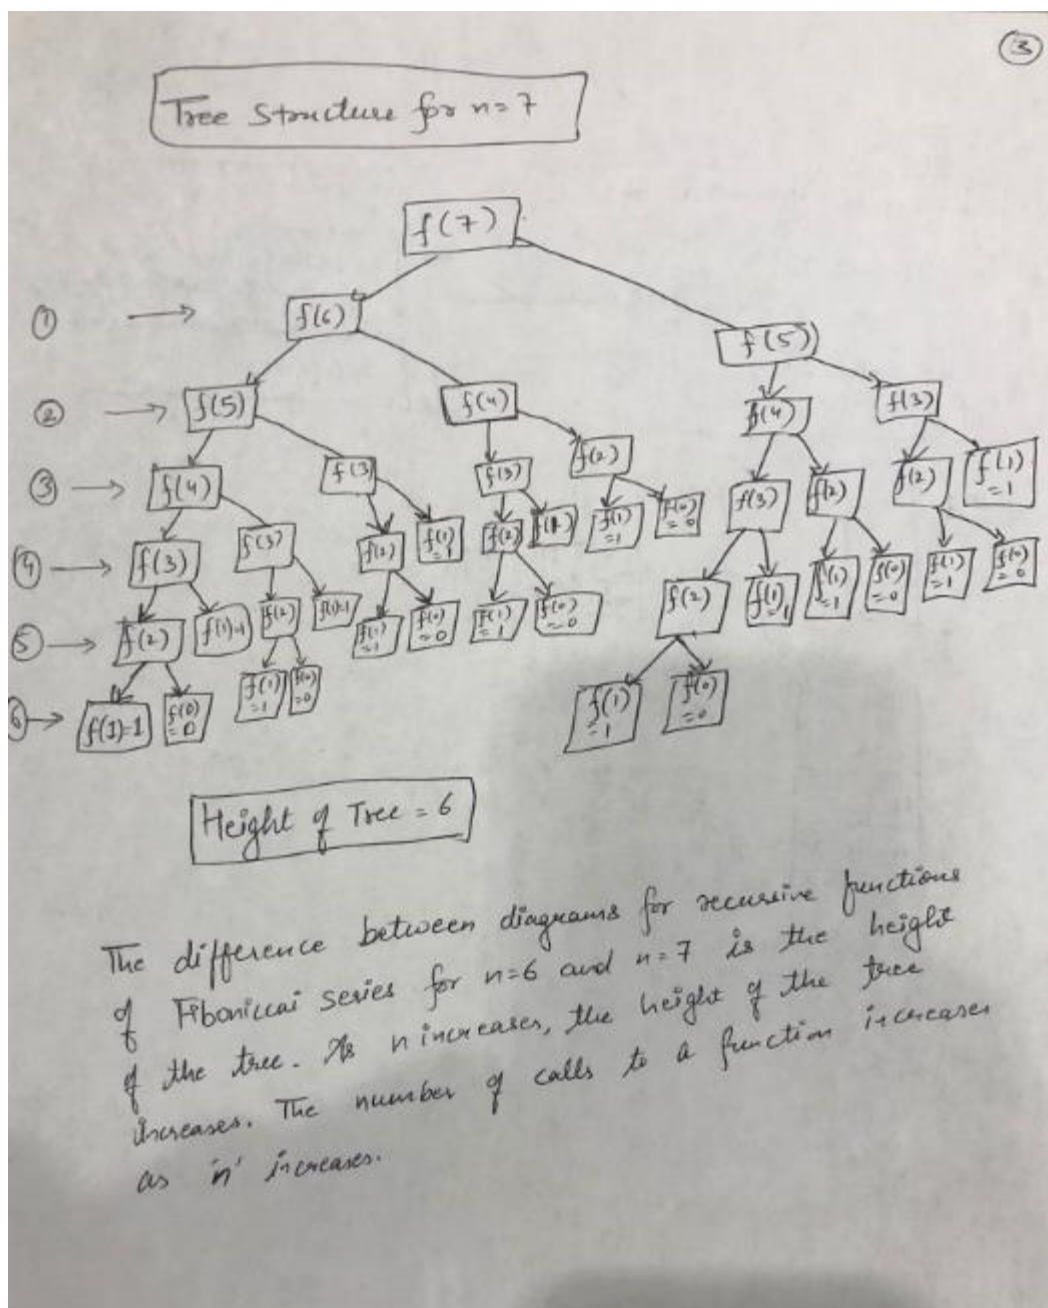 3
Tree Structure for n=7
f(7)
1 → f(6) f(5)
2 → f(5) f(4) f(4) f(3)
3 → f(4) f(3) f(3) f(2) f(3) f(2) f(2) f(1)=1
4 → f(3) f(3) f(2) f(1)=1 f(2) f(1) f(1)=1 f(0)=0 f(2) f(1)=1 f(1)=1 f(0)=0 f(1)=1 f(0)=0
5 → f(2) f(1)=1 f(2) f(1)=1 f(1)=1 f(0)=0 f(1)=1 f(0)=0 f(1)=1 f(0)=0
6 → f(1)=1 f(0)=0 f(1)=1 f(0)=0
Height of Tree = 6
The difference between diagrams for recursive functions
of Fiboniccai series for n=6 and n=7 is the height
of the tree. As n increases, the height of the tree
increases. The number of calls to a function increases
as 'n' increases.